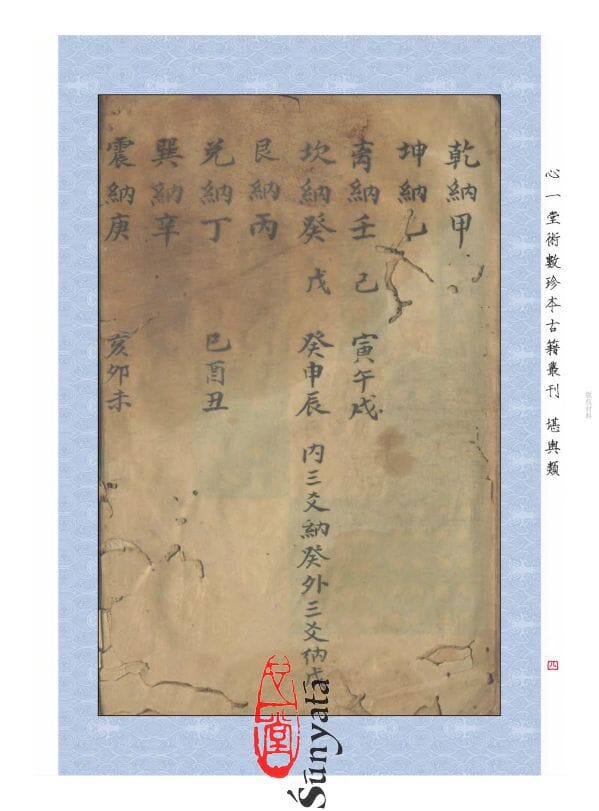 乾納甲
坤納乙
离納壬 己 寅午戌
坎納癸 戊 癸申辰 内三爻納癸外三爻納戊
艮納丙
兑納丁 巳酉丑
巽納辛
震納庚 亥卯未
心一堂術數珍本古籍叢刊 堪輿類
四
心一堂
Śūnyatā
版权材料